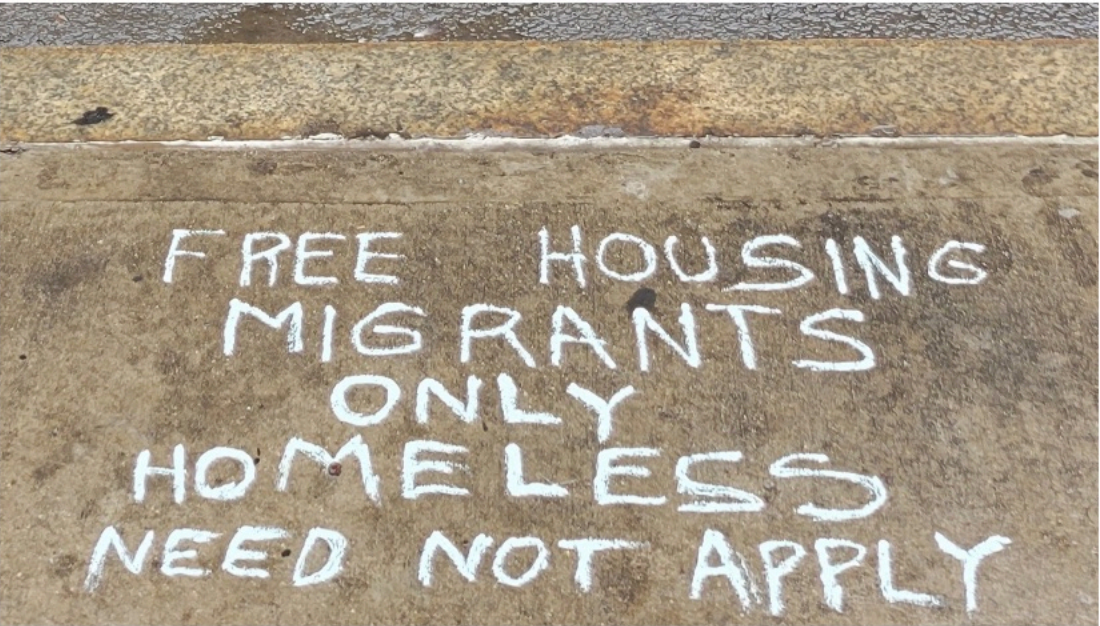 FREE HOUSING
MIGRANTS
ONLY
HOMELESS
NEED NOT APPLY